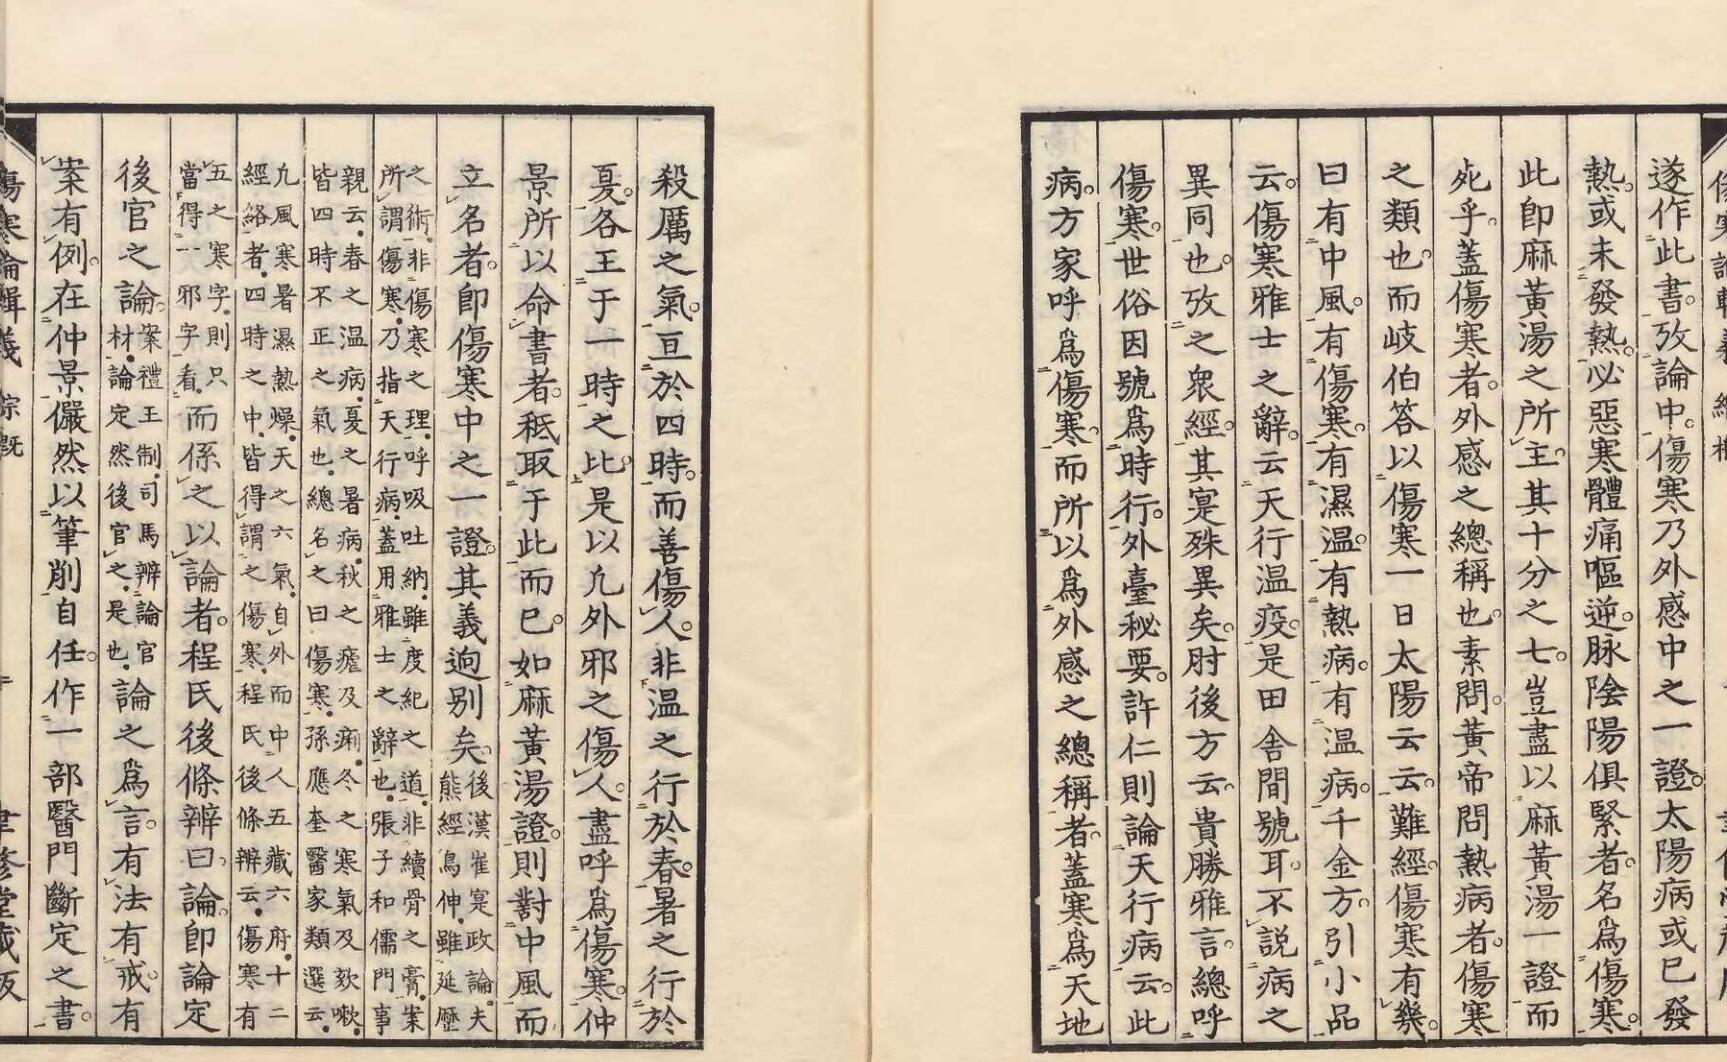 遂作此書。攷論中。傷寒乃外感中之一證。太陽病或已發
熱。或未發熱。必惡寒體痛嘔逆。脉陰陽俱緊者。名爲傷寒。
此卽麻黃湯之所主。其十分之七。豈盡以麻黃湯一證而
死乎。蓋傷寒者。外感之總稱也。素問。黃帝問熱病者。傷寒
之類也。而岐伯答以傷寒一日太陽云云。難經。傷寒有幾。
曰有中風。有傷寒。有濕温。有熱病。有温病。千金方。引小品
云。傷寒雅士之辭。云天行温疫。是田舍間號耳。不說病之
異同也。攷之衆經。其寔殊異矣。肘後方云。貴勝雅言。總呼
傷寒。世俗因號爲時行。外臺秘要。許仁則論天行病云。此
病。方家呼爲傷寒。而所以爲外感之總稱者。蓋寒爲天地
殺厲之氣。亘於四時。而善傷人。非温之行於春。暑之行於
夏。各王于一時之比。是以凡外邪之傷人。盡呼爲傷寒。仲
景所以命書者。秪取于此而已。如麻黃湯證。則對中風而
立名者。卽傷寒中之一證。其義逈别矣。後漢崔寔政論。夫
熊經鳥伸。雖延歷
之術。非傷寒之理。呼吸吐納。雖度紀之道。非續骨之膏。案
所謂傷寒。乃指天行病。蓋用雅士之辭也。張子和儒門事
親云。春之温病。夏之暑病。秋之瘧及痢。冬之寒氣及欬嗽。
皆四時不正之氣也。總名之曰傷寒。孫應奎醫家類選云。
凡風寒暑濕熱燥。天之六氣。自外而中人五藏六府。十二
經絡者。四時之中。皆得謂之傷寒。程氏後條辨云。傷寒有
五之寒字。則只
當得一邪字看。而係之以論者。程氏後條辨曰。論。卽論定
後官之論。案禮王制。司馬辨論官
材。論定然後官之。是也。論之爲言。有法有戒。有
案有例。在仲景儼然以筆削自任。作一部醫門斷定之書。
傷寒論輯義 綜概
聿修堂藏版